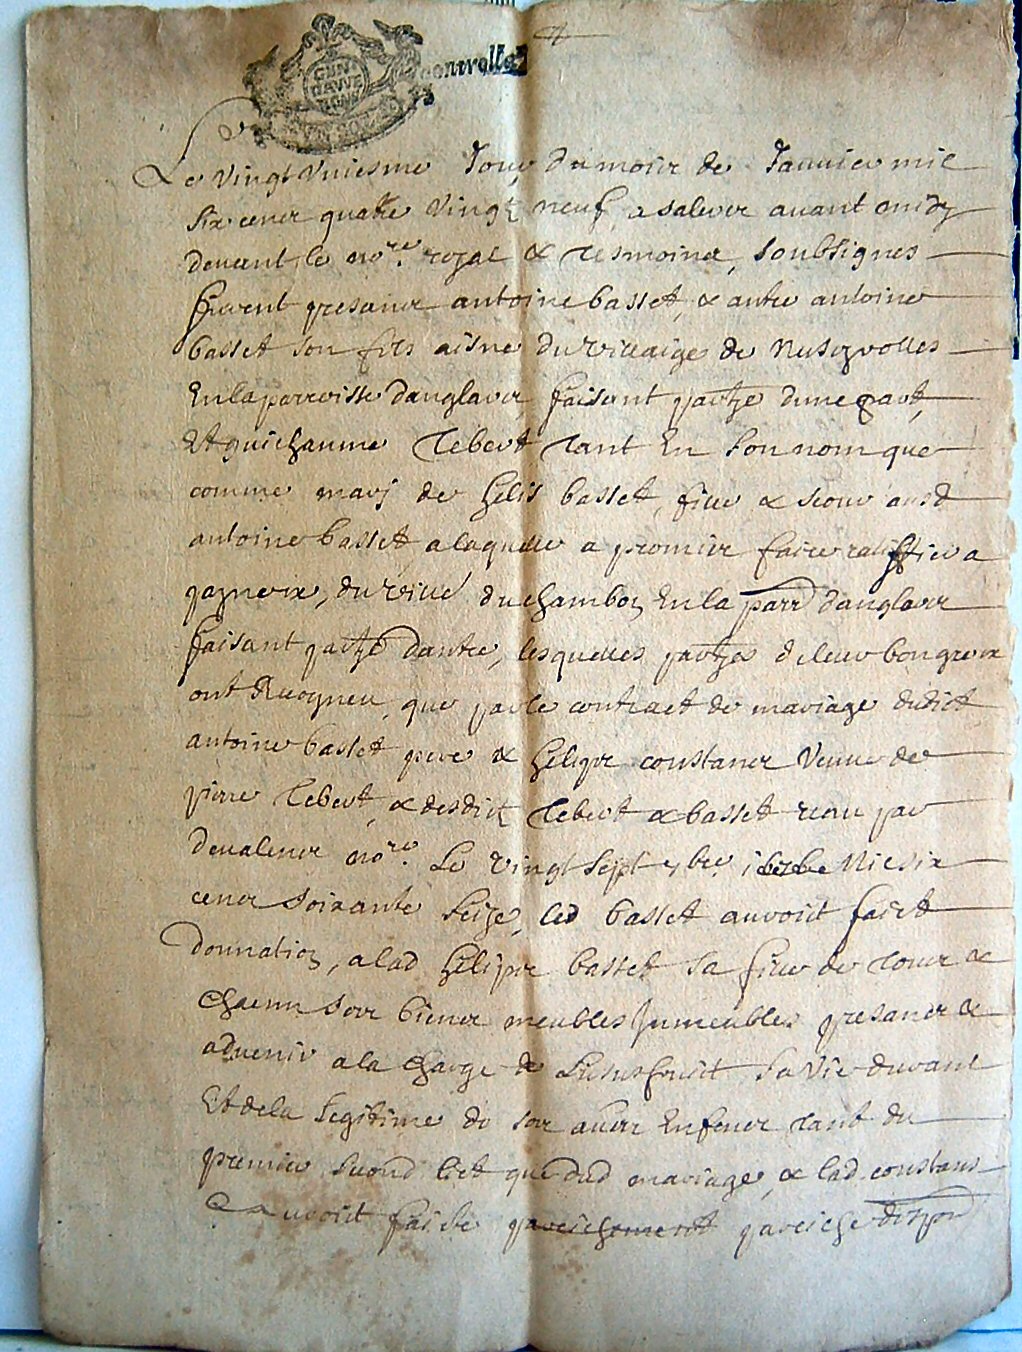 controllé
Le vingt uniesme Jour du mois de Januier mil
six cens quatre vingt neuf a salers auant midy
deuant le no.re royal & tesmoins, soubsignes
furent presans antoine basset, & autre antoine
basset son fils aisne du villaige de
En la parroisse danglars, faisant partye dune part,
Et guichaume Tebert tant En son nom que
comme mary de helis basset, fille & seour ausd
antoine basset, a laquelle a promis faire ratiffier a
, du villé du chambon En la parr danglars
faisant partye dautre, lesquelles partyes de leur bon gre
ont Recogneu, que par le contract de mariage dudict
antoine basset pere & helips constans veuue de
pierre Tebert, & desdictz Tebert & basset receu par
deualens no.re Le vingt sept 7bre Mil six
cens soixante seize, led basset auroit faict
donnation, a lad helips basset sa fille de tous &
chacun ses biens meubles Jmmeubles presans &
aduenir a la charge de Lusufruict sa vie durant
Et de la legitime de ses autres Enfens tant du
premier second lict que dud mariage, & lad constans
auroit faicte pareichement pareiche